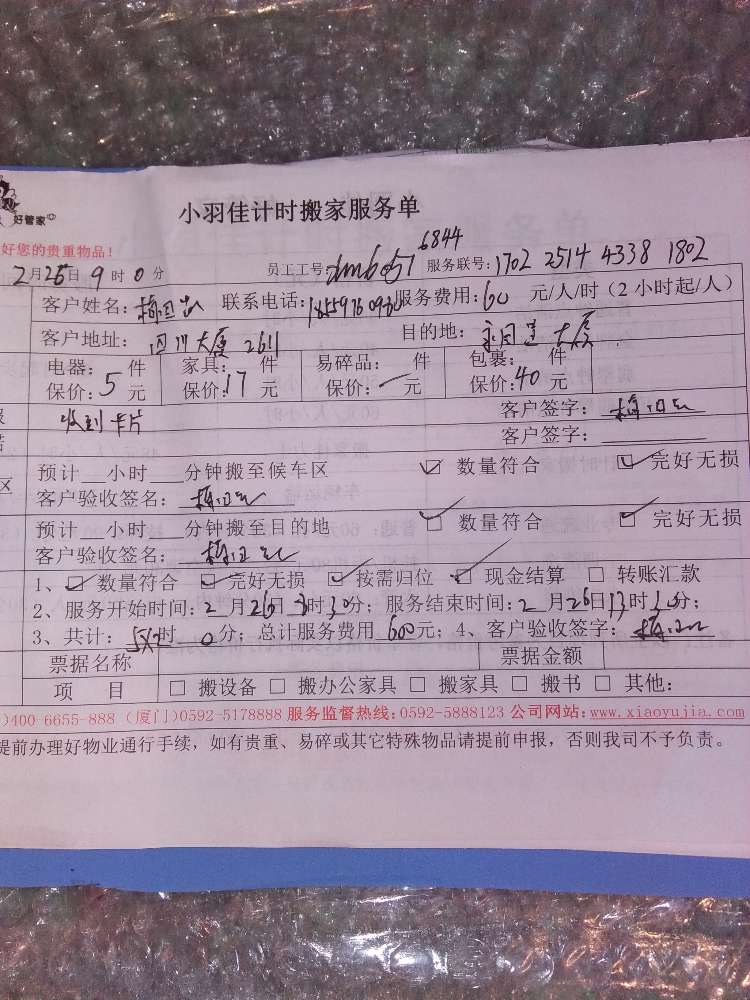 好管家
小羽佳计时搬家服务单
好您的贵重物品!
2月26日9时0分 员工工号: 6844 服务联号: 1702 2514 4338 1802
客户姓名: 联系电话: 服务费用: 60 元/人/时(2小时起/人)
客户地址: 四川大厦 2611 目的地: 大厦
电器: 件 家具: 件 易碎品: 件 包裹: 件
保价: 5 元 保价: 17 元 保价: 元 保价: 40 元
收到卡片 客户签字:
客户签字:
区 预计___小时___分钟搬至候车区 ☑ 数量符合 ☑ 完好无损
客户验收签名:
预计___小时___分钟搬至目的地 ☑ 数量符合 ☑ 完好无损
客户验收签名:
1、☑ 数量符合 ☑ 完好无损 ☑ 按需归位 ☑ 现金结算 □ 转账汇款
2、服务开始时间: 2月26日 时30分; 服务结束时间: 2月26日13时30分;
3、共计: 5X2时 0分; 总计服务费用 600元; 4、客户验收签字:
票据名称 票据金额
项 目 □ 搬设备 □ 搬办公家具 □ 搬家具 □ 搬书 □ 其他:
)400 6655-888 (厦门)0592-5178888 服务监督热线:0592-5888123 公司网站:www.xiaoyujia.com
提前办理好物业通行手续,如有贵重、易碎或其它特殊物品请提前申报,否则我司不予负责。